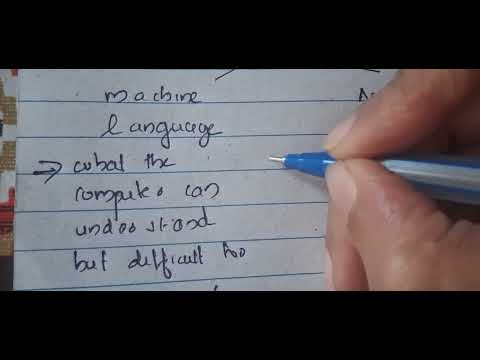 machine
language
→ what the
computer can
understand
but difficult to